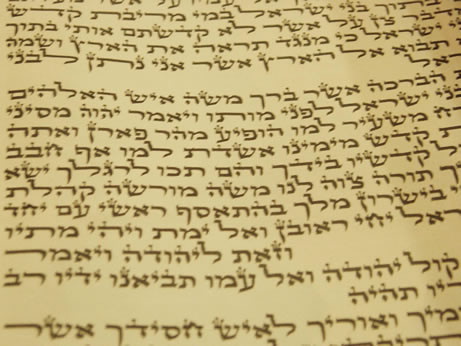 בתוך בני ישראל במי מריבת קדש
צן על אשר לא קדשתם אותי בתוך
ישראל כי מנגד תראה את הארץ ושמה
תבוא אל הארץ אשר אני נתן לבני
הברכה אשר ברך משה איש האלהים
בני ישראל לפני מותו ויאמר יהוה מסיני
משעיר למו הופיע מהר פארן ואתה
קדש מימינו אשדת למו אף חבב
קדשיו בידך והם תכו לרגלך ישא
תורה צוה לנו משה מורשה קהלת
בישרון מלך בהתאסף ראשי עם יחד
יחי ראובן ואל ימת ויהי מתיו
וזאת ליהודה ויאמר
קול יהודה ואל עמו תביאנו ידיו רב
תהיה
ואוריך לאיש חסידך אשר